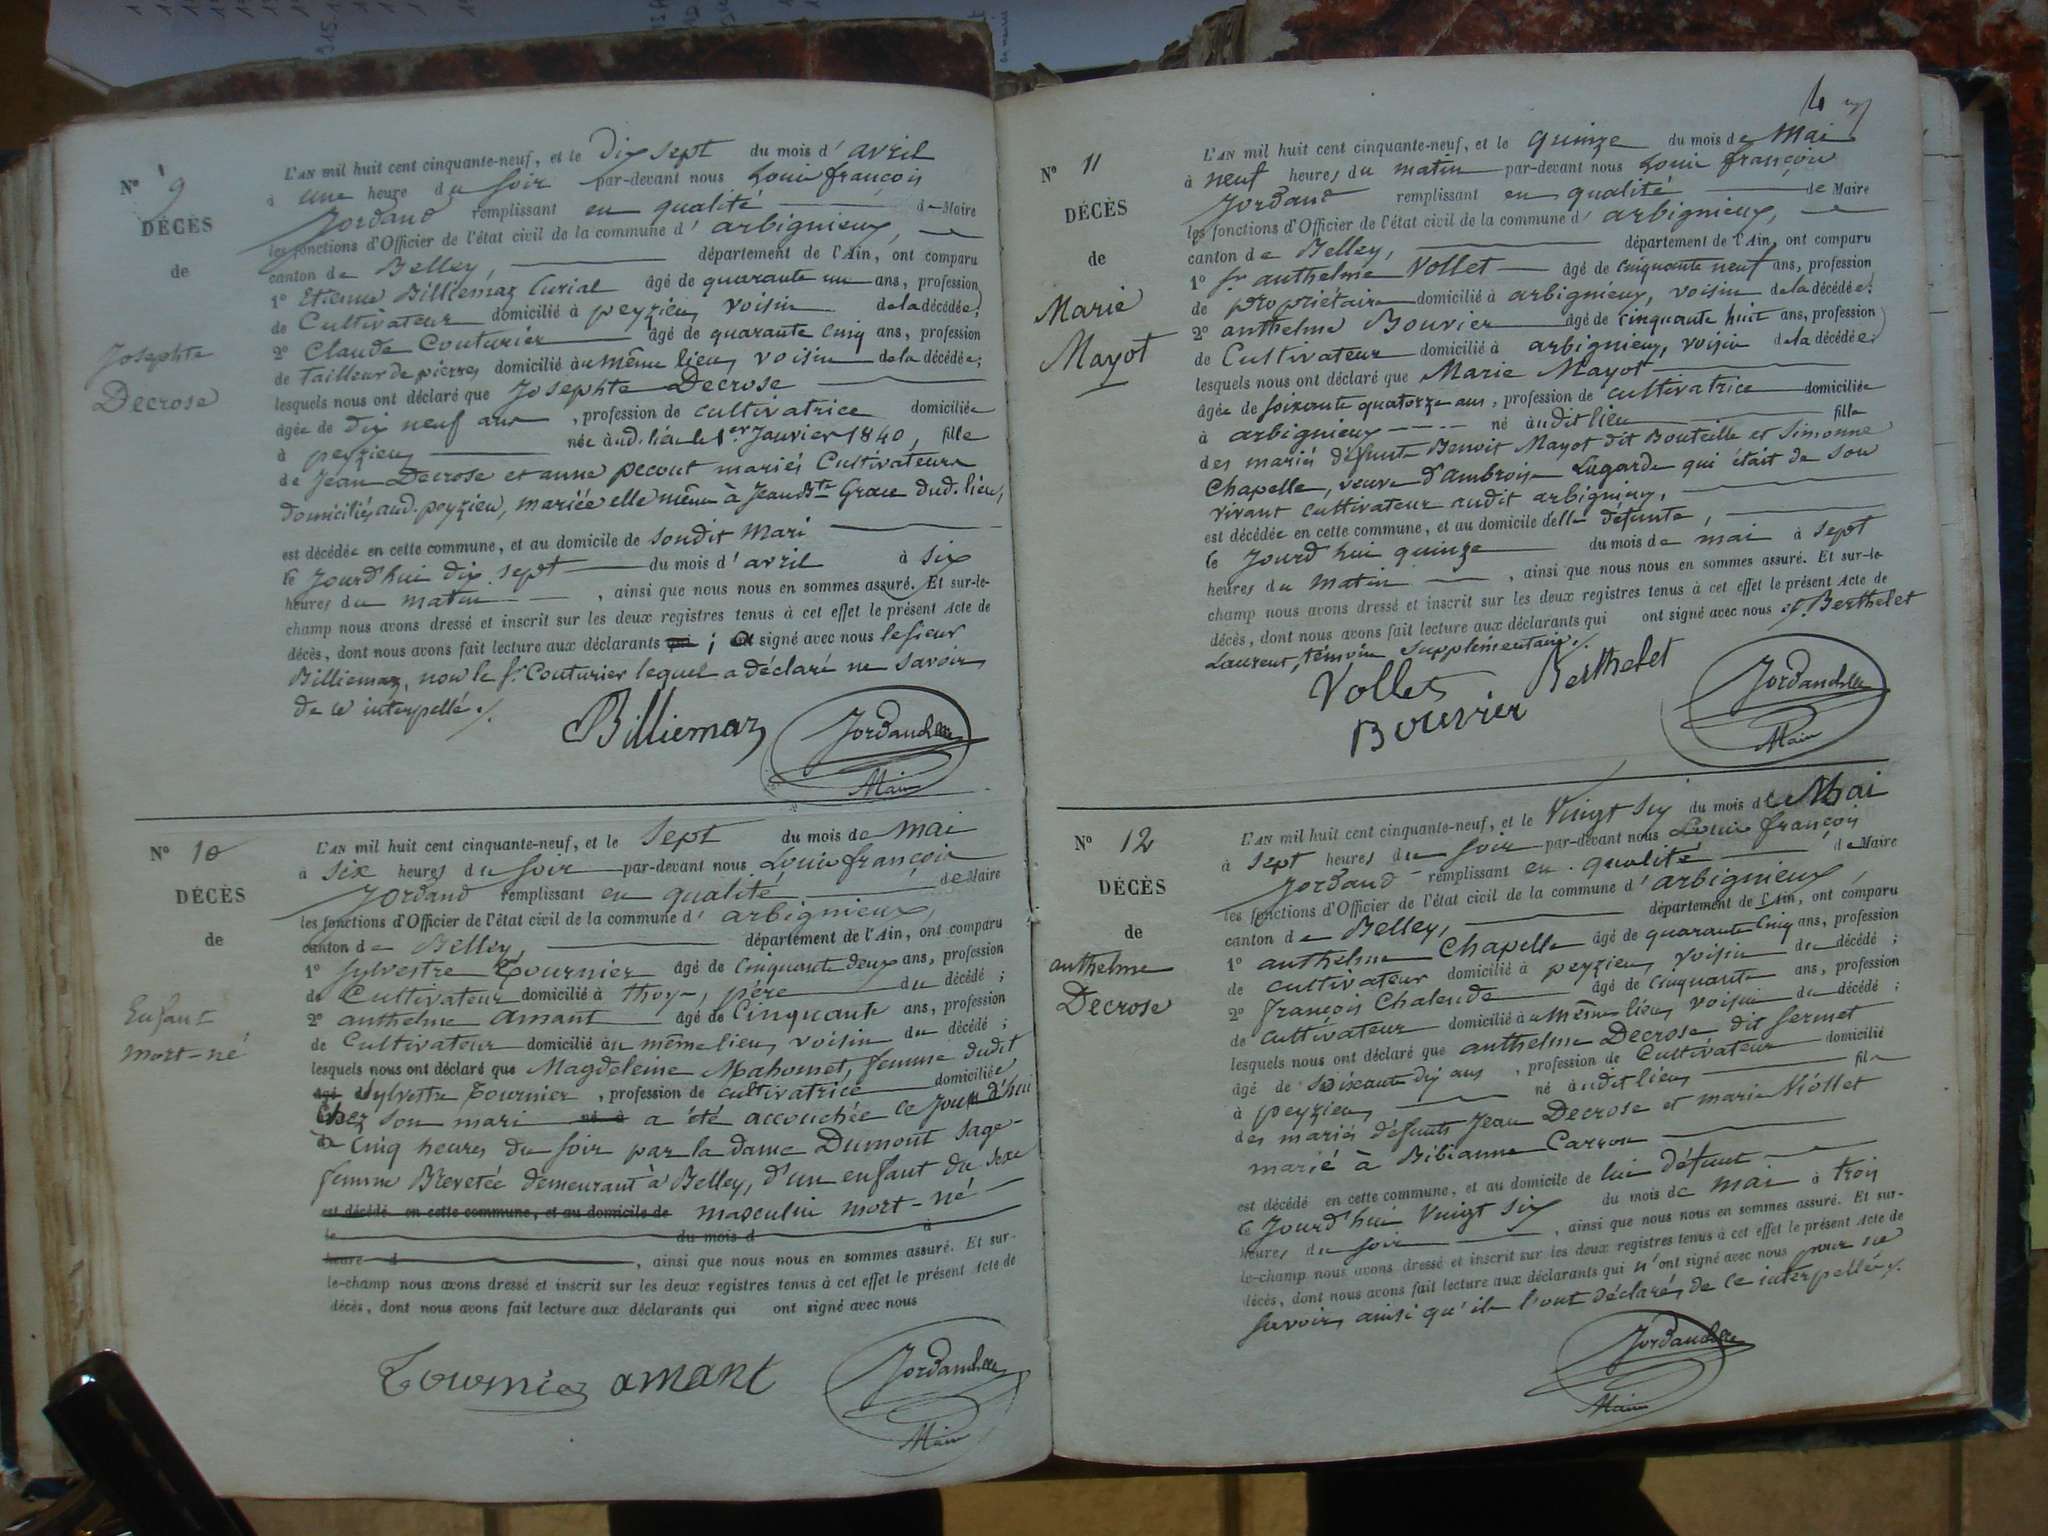 N° 9
DÉCÈS
de
Josephte
Decrose
L'AN mil huit cent cinquante-neuf, et le dix sept du mois d'avril
à une heure du soir par-devant nous Louis françois
Jordand remplissant en qualité de Maire
les fonctions d'Officier de l'état civil de la commune d'arbignieux,
canton de Belley, département de l'Ain, ont comparu
1° Etienne Billiemaz Curial âgé de quarante un ans, profession
de Cultivateur domicilié à peyzieu, voisin de la décédée;
2° Claude Couturier âgé de quarante cinq ans, profession
de tailleur de pierres domicilié au même lieu, voisin de la décédée;
lesquels nous ont déclaré que Josephte Decrose
âgée de dix neuf ans, profession de cultivatrice domiciliée
à peyzieu née aud. lieu le 1er Janvier 1840, fille
de Jean Decrose et anne pecout mariés Cultivateurs
domiciliés aud. peyzieu, mariée elle même à Jean Bte Grave dud. lieu,
est décédée en cette commune, et au domicile de sondit mari
le jourd'hui dix sept du mois d'avril à six
heures du matin, ainsi que nous nous en sommes assuré. Et sur-le-
champ nous avons dressé et inscrit sur les deux registres tenus à cet effet le présent Acte de
décès, dont nous avons fait lecture aux déclarants qui ; ont signé avec nous le sieur
Billiemaz, non le sr. Couturier lequel a déclaré ne savoir
de ce interpellé ./.
Billiemaz Jordand
Maire
N° 10
DÉCÈS
de
Enfant
mort-né
L'AN mil huit cent cinquante-neuf, et le sept du mois de mai
à six heures du soir par-devant nous Louis françois
Jordand remplissant en qualité de Maire
les fonctions d'Officier de l'état civil de la commune d'arbignieux,
canton de Belley, département de l'Ain, ont comparu
1° Sylvestre Tournier âgé de cinquante deux ans, profession
de Cultivateur domicilié à thoy, père du décédé;
2° anthelme amant âgé de cinquante ans, profession
de Cultivateur domicilié au même lieu, voisin du décédé;
lesquels nous ont déclaré que Magdeleine Mahomet, femme dudit
âgé Sylvestre Tournier, profession de cultivatrice domiciliée
chez son mari né à a été accouchée ce jourd'hui
à cinq heures du soir par la dame Dumont sage-
femme Brevetée demeurant à Belley, d'un enfant du sexe
est décédé en cette commune, et au domicile de masculin mort-né
le du mois d à
heure d, ainsi que nous nous en sommes assuré. Et sur-
le-champ nous avons dressé et inscrit sur les deux registres tenus à cet effet le présent Acte de
décès, dont nous avons fait lecture aux déclarants qui ont signé avec nous
Tournier amant Jordand
Maire
N° 11
DÉCÈS
de
Marie
Mayot
L'AN mil huit cent cinquante-neuf, et le quinze du mois de Mai
à neuf heures du matin par-devant nous Louis françois
Jordand remplissant en qualité de Maire
les fonctions d'Officier de l'état civil de la commune d'arbignieux,
canton de Belley, département de l'Ain, ont comparu
1° sr anthelme Vollet âgé de cinquante neuf ans, profession
de propriétaire domicilié à arbignieux, voisin de la décédée;
2° anthelme Bouvier âgé de cinquante huit ans, profession
de Cultivateur domicilié à arbignieux, voisin de la décédée;
lesquels nous ont déclaré que Marie Mayot
âgée de soixante quatorze ans, profession de cultivatrice domiciliée
à arbignieux né audit lieu fille
des mariés défunts Benoit Mayot dit Bouteille et Simonne
Chapelle, veuve d'Ambroise Lagarde qui était de son
vivant cultivateur audit arbignieux,
est décédée en cette commune, et au domicile d'elle défunte,
le jourd'hui quinze du mois de mai à sept
heures du matin, ainsi que nous nous en sommes assuré. Et sur-le
champ nous avons dressé et inscrit sur les deux registres tenus à cet effet le présent Acte de
décès, dont nous avons fait lecture aux déclarants qui ont signé avec nous et Berthelet
Laurent, témoin supplémentaire ./.
Vollet Berthelet Jordand
Bouvier Maire
N° 12
DÉCÈS
de
anthelme
Decrose
L'AN mil huit cent cinquante-neuf, et le Vingt six du mois de Mai
à sept heures du soir par-devant nous Louis françois
Jordand remplissant en qualité de Maire
les fonctions d'Officier de l'état civil de la commune d'arbignieux,
canton de Belley, département de l'Ain, ont comparu
1° anthelme Chapelle âgé de quarante cinq ans, profession
de cultivateur domicilié à peyzieu, voisin du décédé;
2° françois Chalende âgé de cinquante ans, profession
de cultivateur domicilié au même lieu, voisin du décédé;
lesquels nous ont déclaré que anthelme Decrose dit fermet
âgé de soixante dix ans, profession de Cultivateur domicilié
à peyzieu né audit lieu fils
des mariés défunts Jean Decrose et marie Viollet
marié à Bibianne Carron
est décédé en cette commune, et au domicile de lui défunt
le jourd'hui vingt six du mois de mai à trois
heures du soir, ainsi que nous nous en sommes assuré. Et sur-
le-champ nous avons dressé et inscrit sur les deux registres tenus à cet effet le présent Acte de
décès, dont nous avons fait lecture aux déclarants qui n'ont signé avec nous pour ne
savoir, ainsi qu'ils l'ont déclaré, de ce interpellés ./.
Jordand
Maire